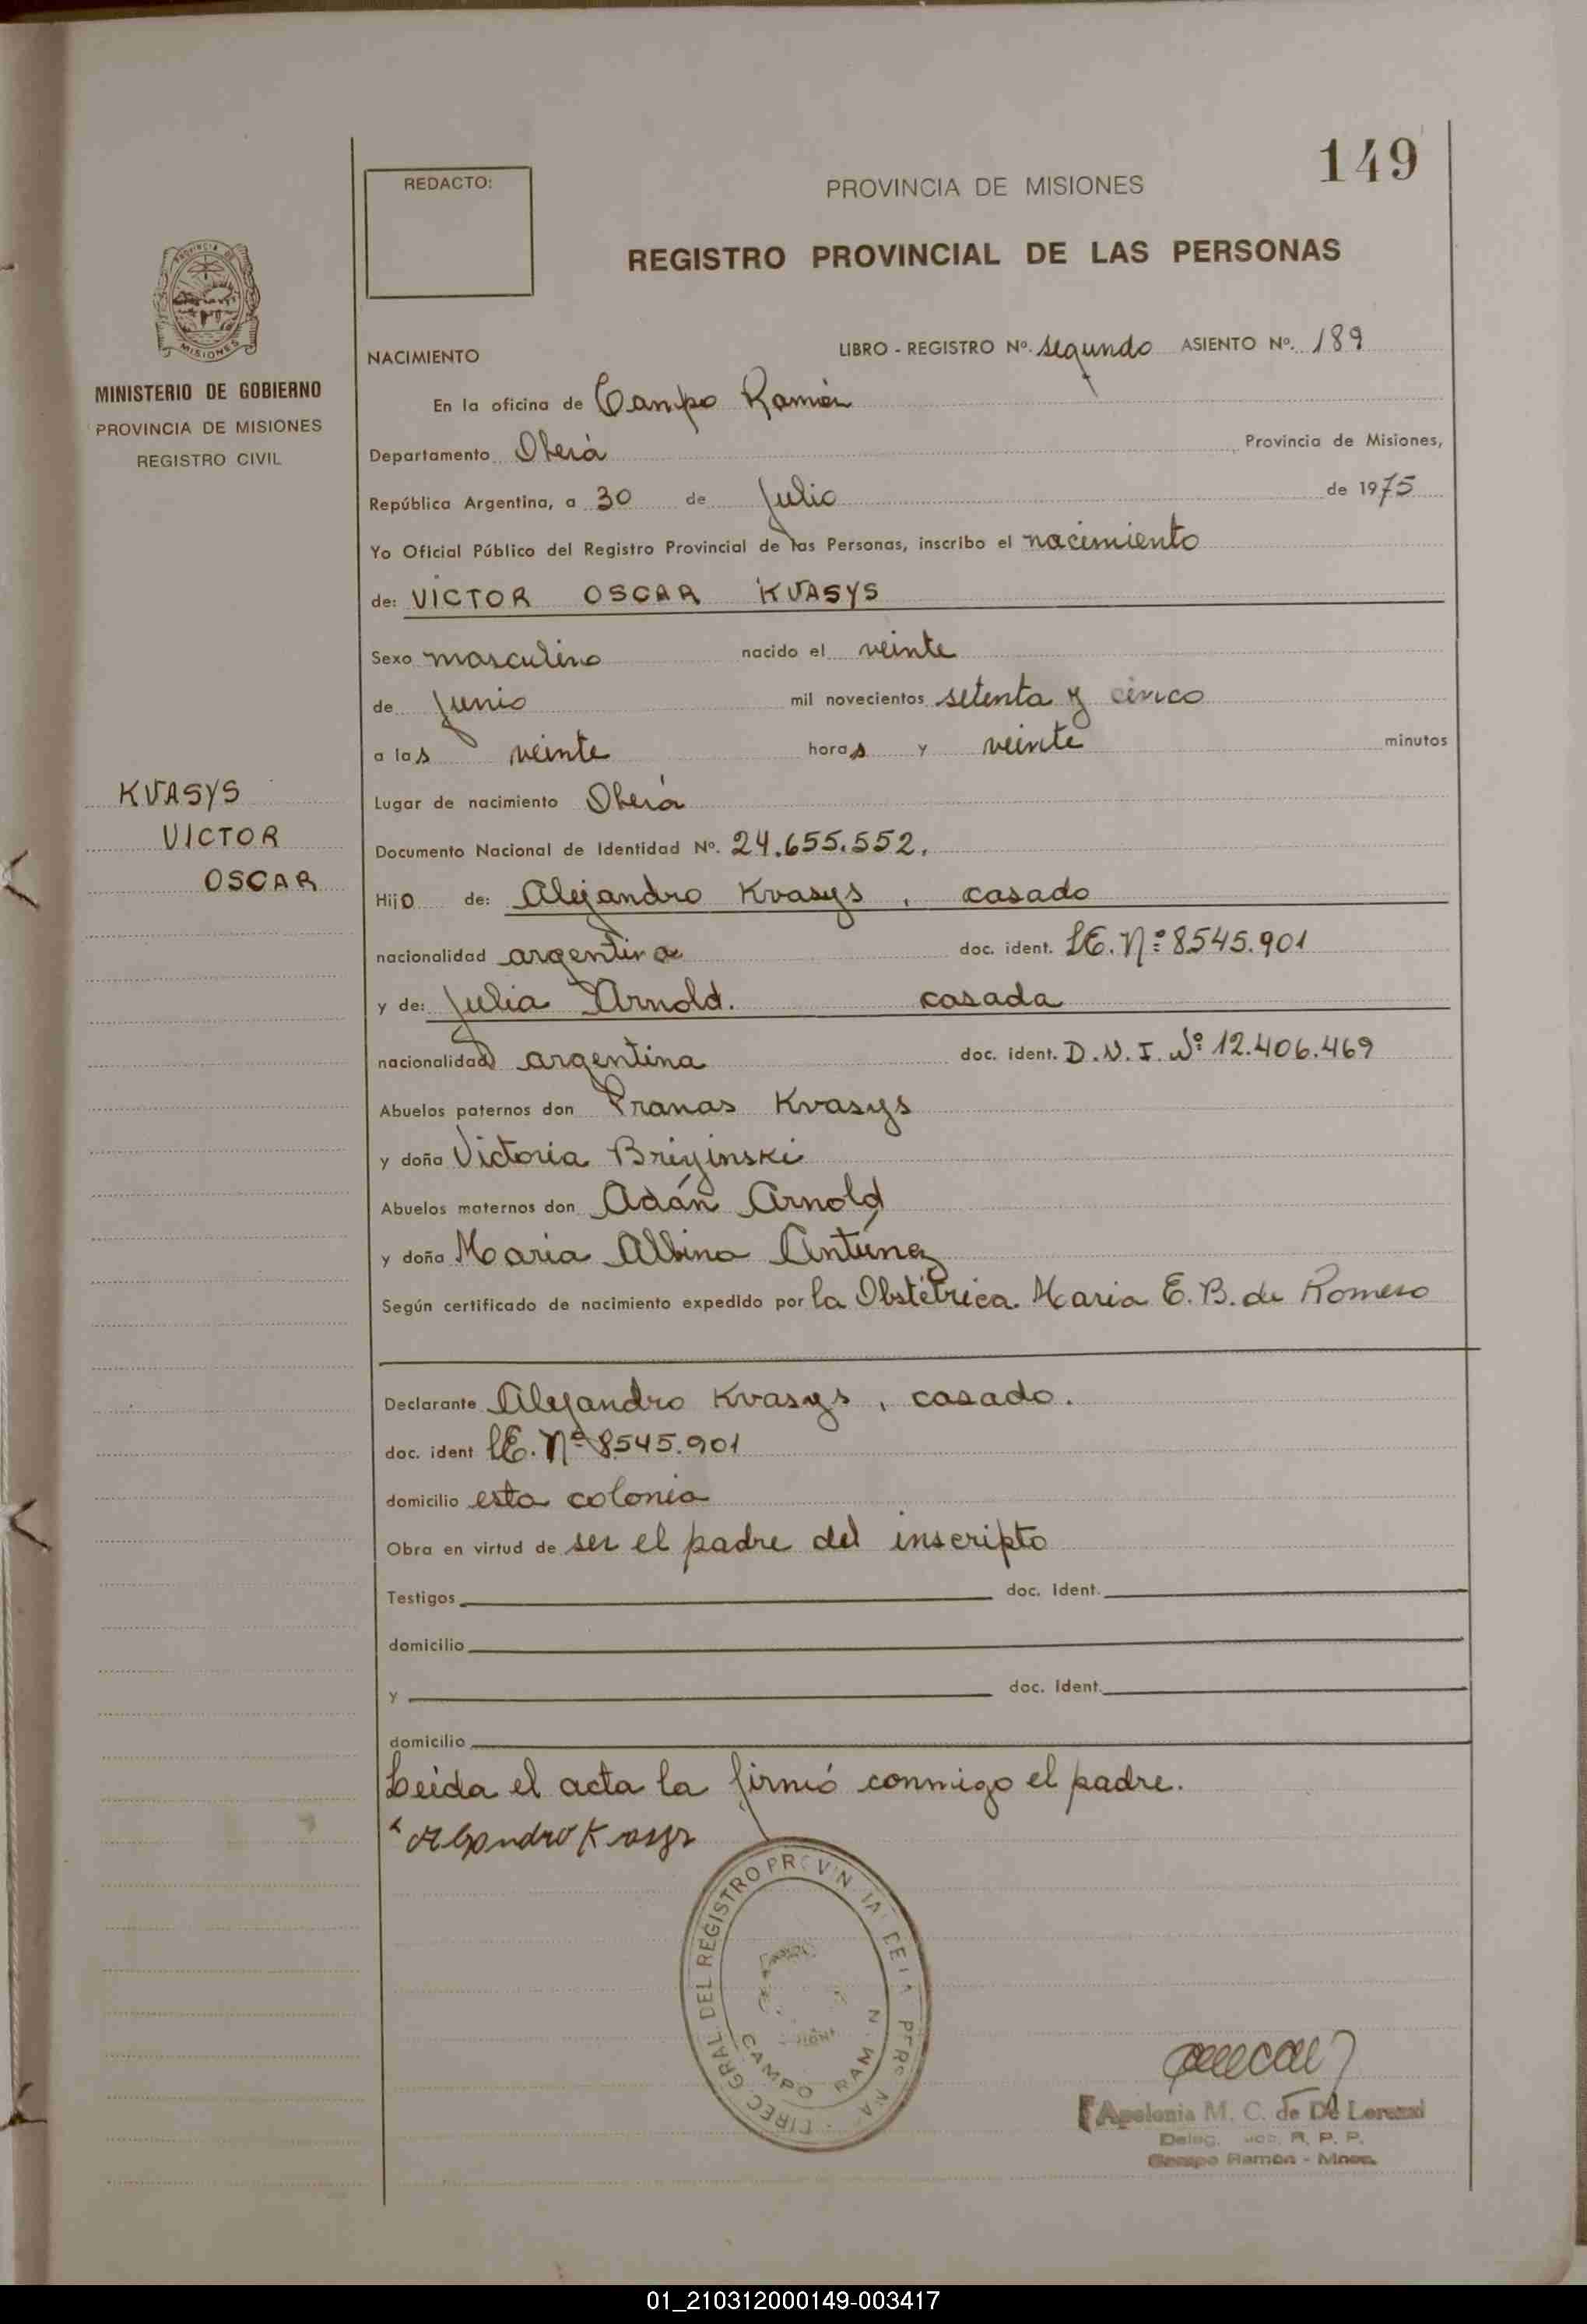 149
REDACTO:
PROVINCIA DE MISIONES
REGISTRO PROVINCIAL DE LAS PERSONAS
PROVINCIA DE
MISIONES
MINISTERIO DE GOBIERNO
PROVINCIA DE MISIONES
REGISTRO CIVIL
NACIMIENTO
LIBRO - REGISTRO Nº. segundo ASIENTO Nº. 189
En la oficina de Campo Ramón
Departamento Oberá, Provincia de Misiones,
República Argentina, a 30 de Julio de 1975
Yo Oficial Público del Registro Provincial de las Personas, inscribo el nacimiento
de: VICTOR OSCAR KVASYS
Sexo masculino nacido el veinte
de Junio mil novecientos setenta y cinco
a las veinte horas y veinte minutos
KVASYS
VICTOR
OSCAR
Lugar de nacimiento Oberá
Documento Nacional de Identidad Nº. 24.655.552.
Hijo de: Alejandro Kvasys, casado
nacionalidad argentina doc. ident. LE. Nº 8545.901
y de: Julia Arnold. casada
nacionalidad argentina doc. ident. D.N.I. Nº 12.406.469
Abuelos paternos don Pranas Kvasys
y doña Victoria Briyinski
Abuelos maternos don Adán Arnold
y doña Maria Albina Antúnez
Según certificado de nacimiento expedido por la Obstétrica Maria E. B. de Romero
Declarante Alejandro Kvasys, casado.
doc. ident LE. Nº 8545.901
domicilio esta colonia
Obra en virtud de ser el padre del inscripto
Testigos doc. Ident.
domicilio
y doc. Ident.
domicilio
Leida el acta la firmó conmigo el padre.
DIREC. GRAL. DEL REGISTRO PROVINCIAL DE LA PERSONA
CAMPO RAMON
Apolonia M. C. de De Lorenzi
Deleg. R. P. P.
Campo Ramón - Mnes.
01_210312000149-003417